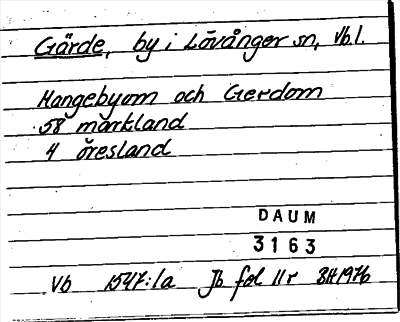 Gärde, by i Lövånger sn, Vb.l.
Mangebyom och Gerdom
58 markland
4 öresland
DAUM
3163
Vb 1547:1a Jb fol 11r BH1976